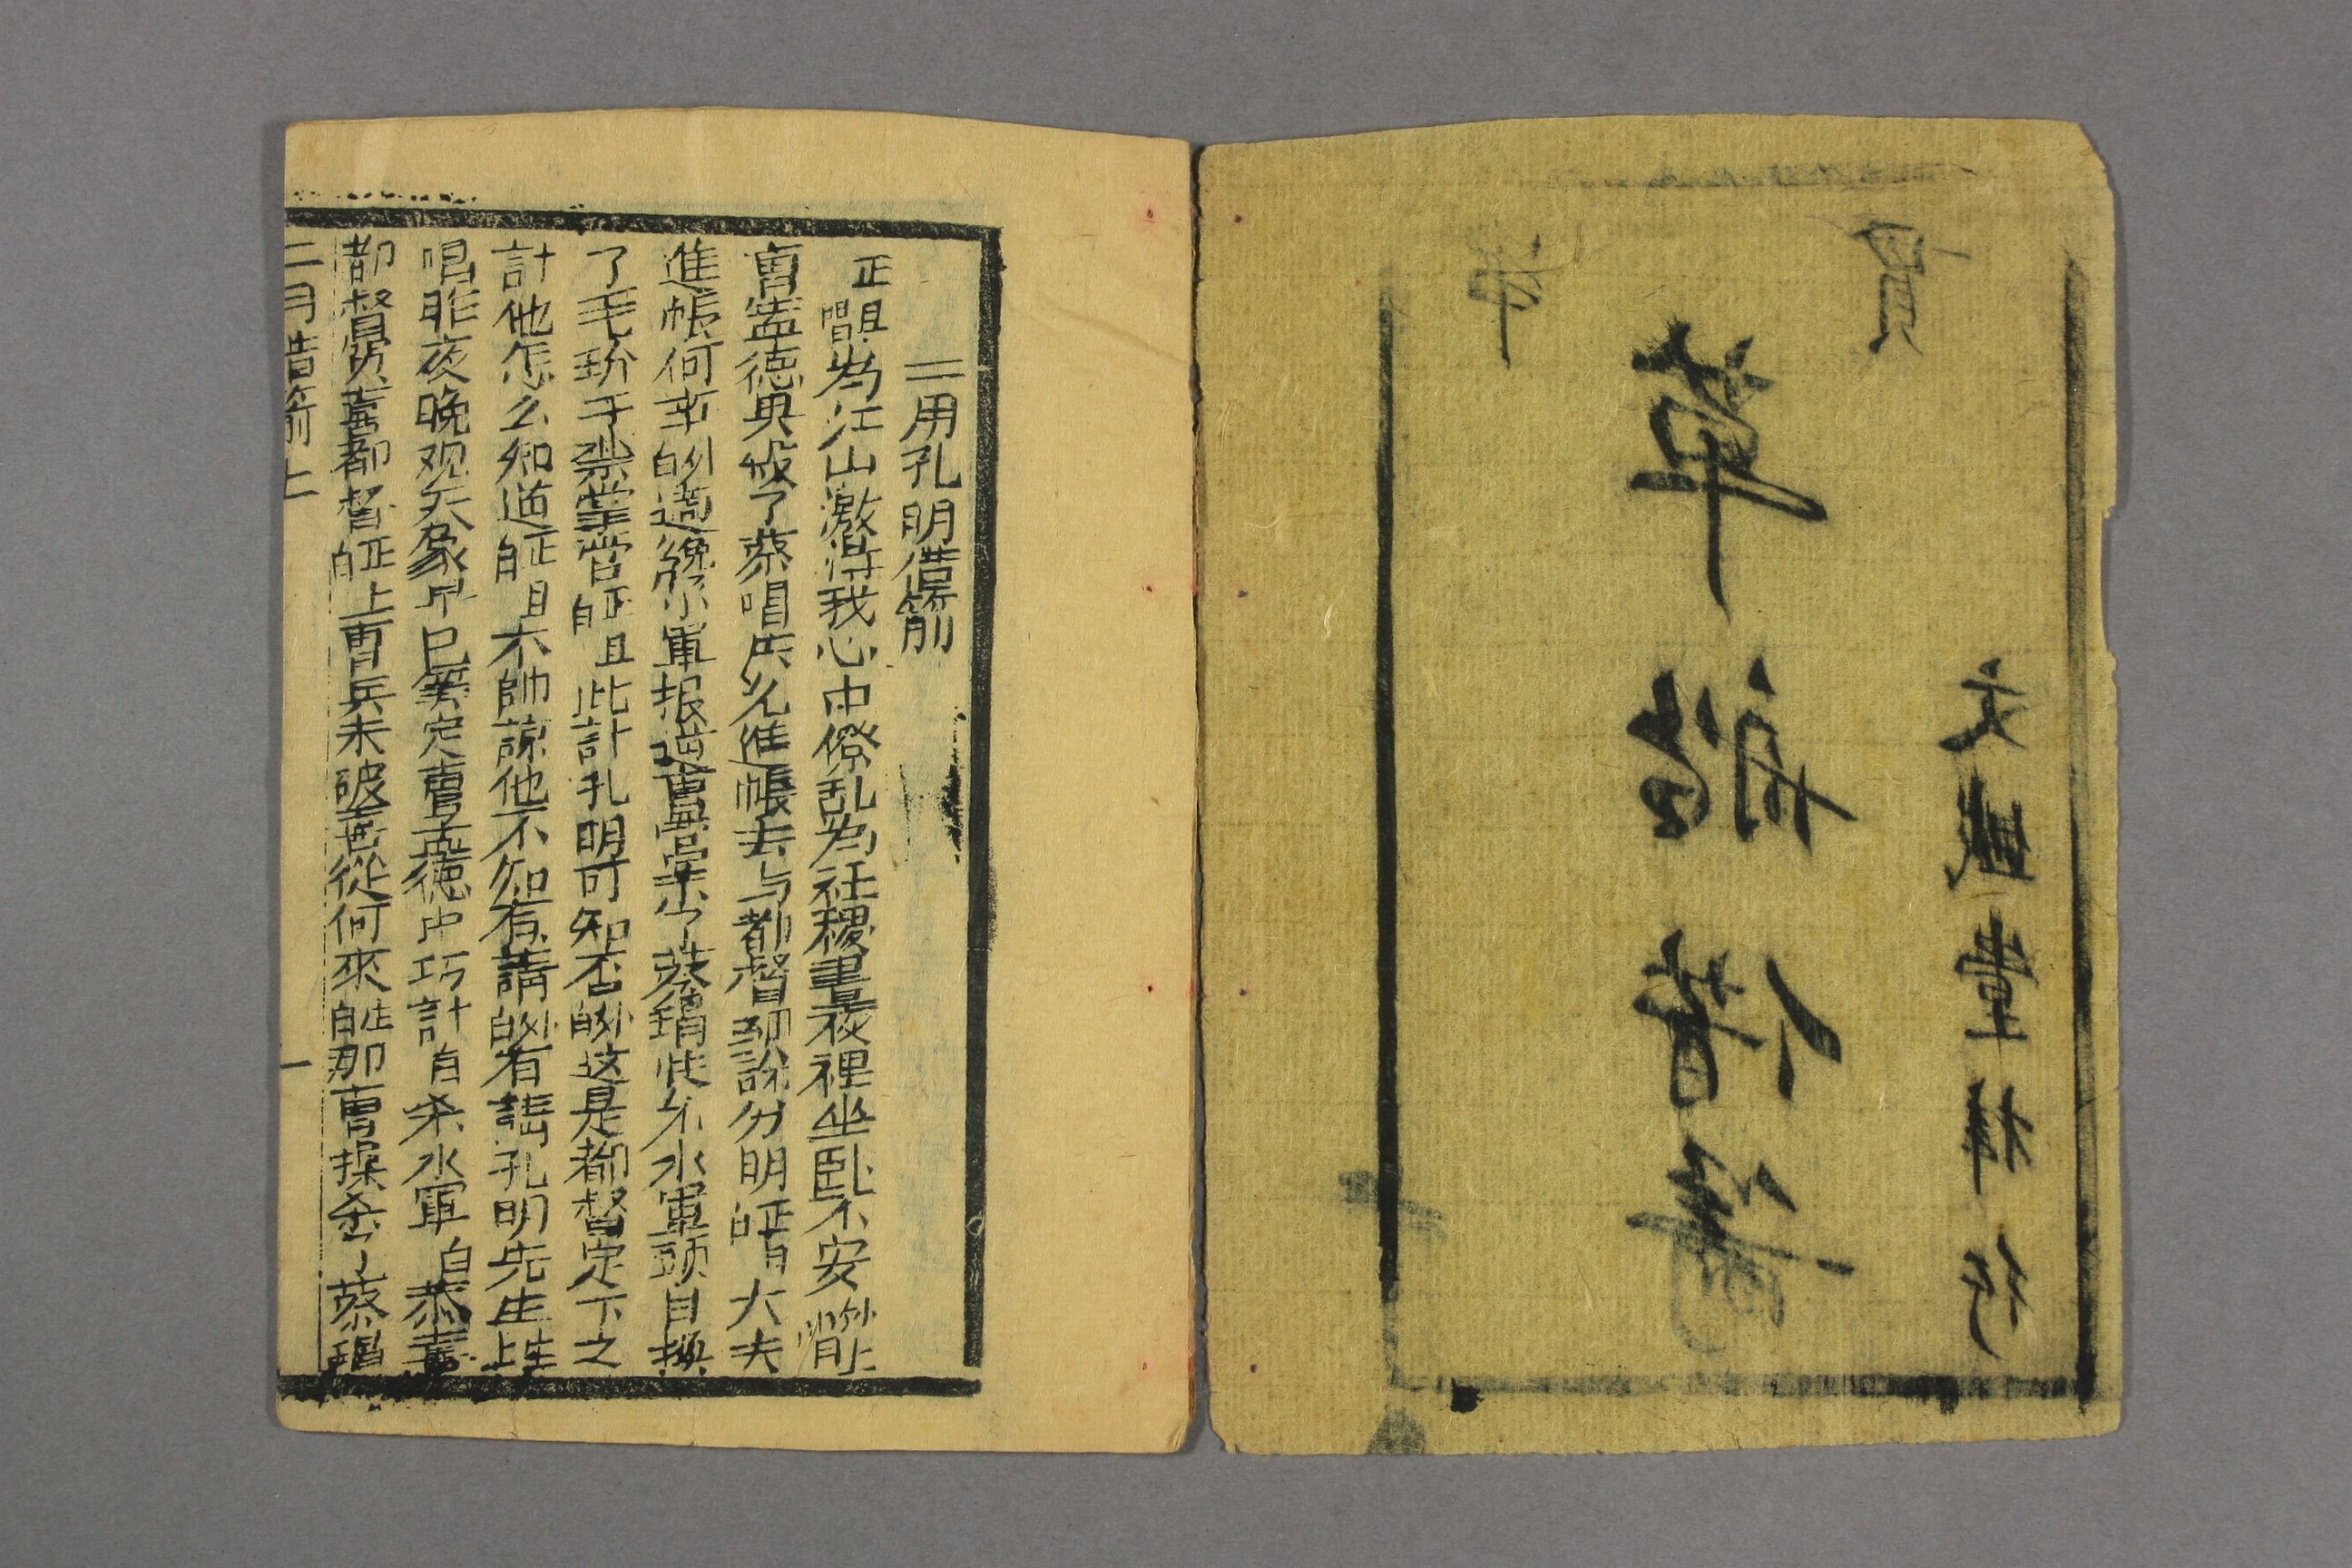 貫
文盛堂梓行
草船借箭
二用孔明借箭
正旦唱为江山激得我心中僚乱为社稷晝夜裡坐卧不安外上
曹孟德果殺了蔡唱兄進帳去与都督說分明白正旦大夫
進帳何事白外適纔小軍报道曹孟杀了蔡瑁水軍頭目換
了毛玠于禁掌管白正旦此計孔明可知否白外这是都督定下之
計他怎么知道白正旦本帅諒他不知有請白外有請孔明先生上生
唱昨夜晚观天象早已算定曹孟德中巧計自杀水軍白恭喜
都督賀喜都督白正上曹兵未破喜從何來白生那曹操杀了蔡瑁
二用借箭上
一